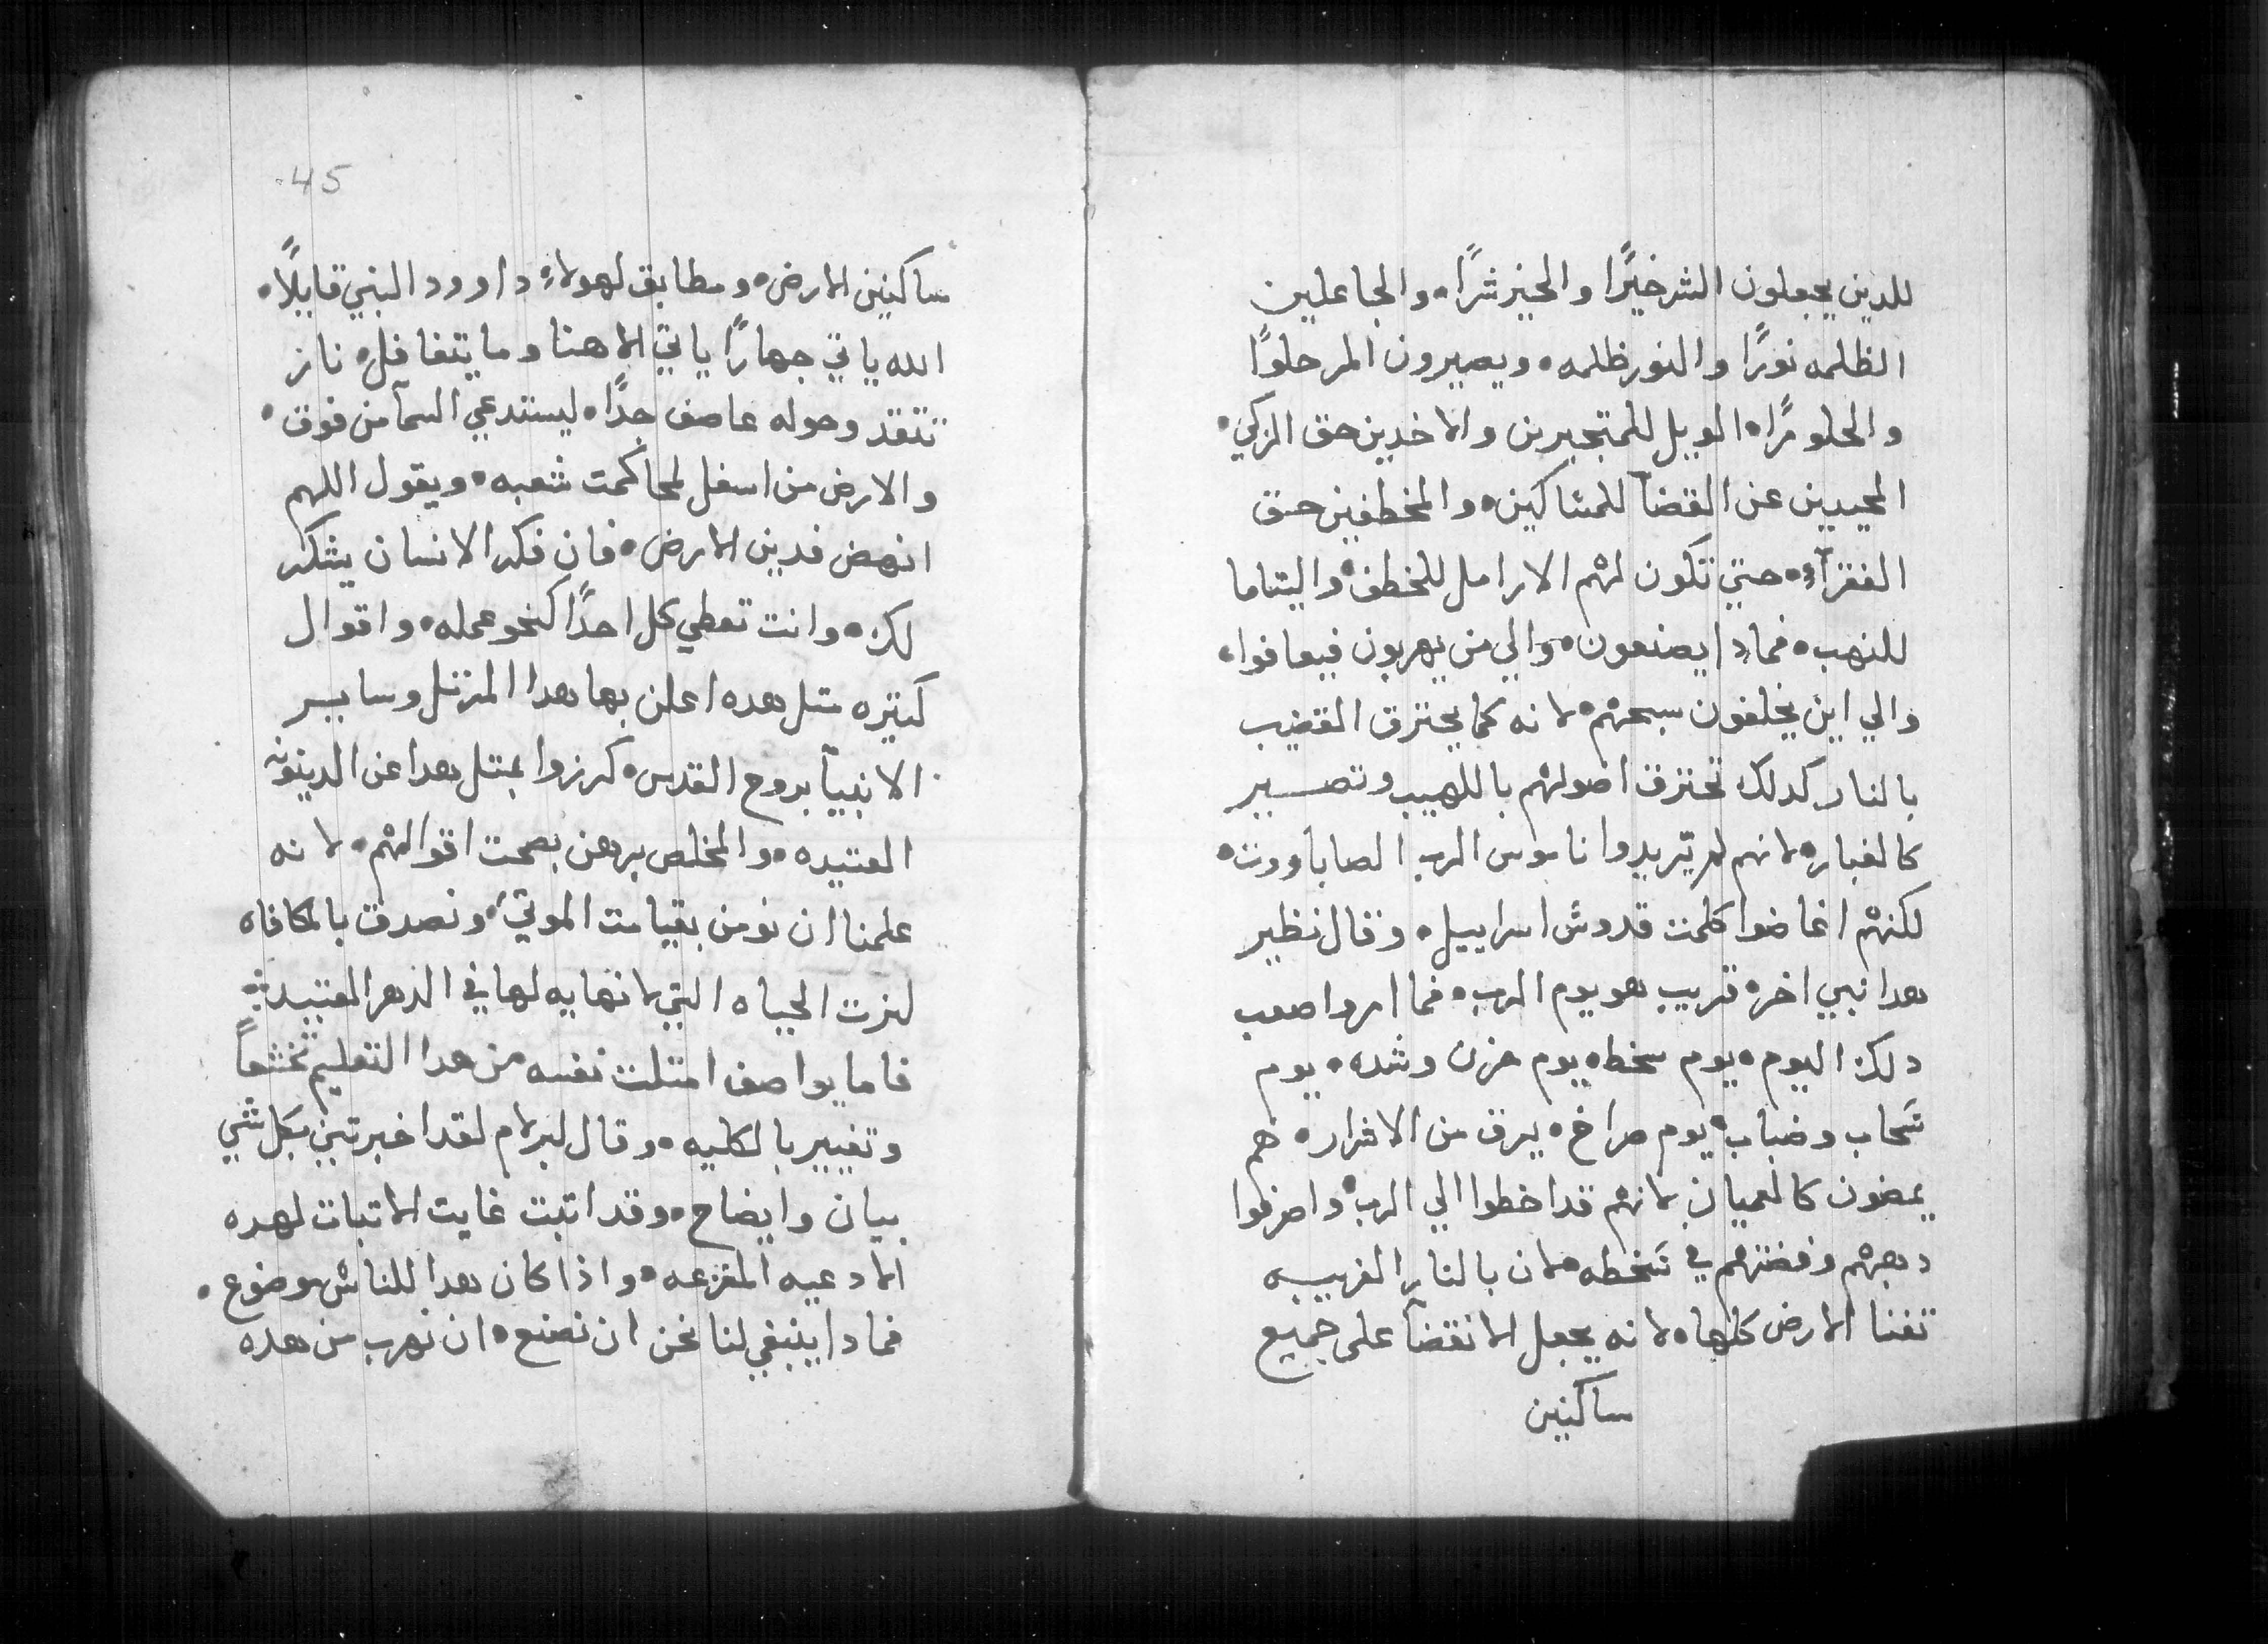 للدين يجعلون الشر خيرًا والخير شرًا • والجاعلين
الظلمه نورًا والنور ظلمه • ويصيرون المر حلوًا
والحلو مرًا • الويل للمتجبرين والاخدين حق الزكي •
المحيدين عن القضآ للمشاكين • والمخطفين حق
الفقرآء • حتي تكون لهم الارامل للخطف • واليتاما
للنهب • فمادا يصنعون • والي من يهربون فيعافوا •
والي اين يخلفون سبحهم • لانه كما يحترق القضيب
بالنار كدلك تحترق اصولهم باللهيب وتصير
كالغبار • لانهم لم يريدوا ناموس الرب الصاباووت •
لكنهم اغاضوا كلمت قدوش اسراييل • وقال نظير
هدا نبي اخر • قريب هو يوم الرب • فما امر واصعب
دلك اليوم • يوم سخط • يوم حزن وشده • يوم
سحاب وضباب • يوم صراخ • يرق من الاشرار • هم
يمضون كالعميان لانهم قد اخطوا الي الرب • واصرفوا
دهبهم وفضتهم في سخطه • لان بالنار الغريبه
تفنا الارض كلها • لانه يجعل الانقضآ على جميع
ساكنين
45
ساكنين الارض • ومطابق لهولاء داوود النبي قايلًا •
الله ياتي جهارًا ياتي الاهنا وما يتغافل • نار
تتقد وحوله عاصف جدًا • ليستدعي السمآ من فوق •
والارض من اسفل لمحاكمت شعبه • ويقول اللهم
انهض فدين الارض • فان فكر الانسان يشكر
لك • وانت تعطي كل احدًا كنحو عمله • واقوال
كتيره متل هده اعلن بها هدا المرتل وساير
الانبيآ بروح القدس • كرزوا بمتل هدا عن الدينونه
العتيده • والمخلص برهن بصحت اقوالهم • لانه
علمنا ان نومن بقيامت الموتي • ونصدق بالمكافاه
لنرت الحياه التي لا نهايه لها في الدهر العتيد
فاما يواصف امتلت نفسه من هدا التعليم تخشعاً
وتغيير بالكليه • وقال لبرلام لقد اخبرتني بكل شي
بيان وايضاح • وقد اتبت غايت الاتبات لهده
الادعيه المفزعه • واذا كان هدا للناس موضوع •
فمادا ينبغي لنا نحن ان نصنع • ان نهرب من هده